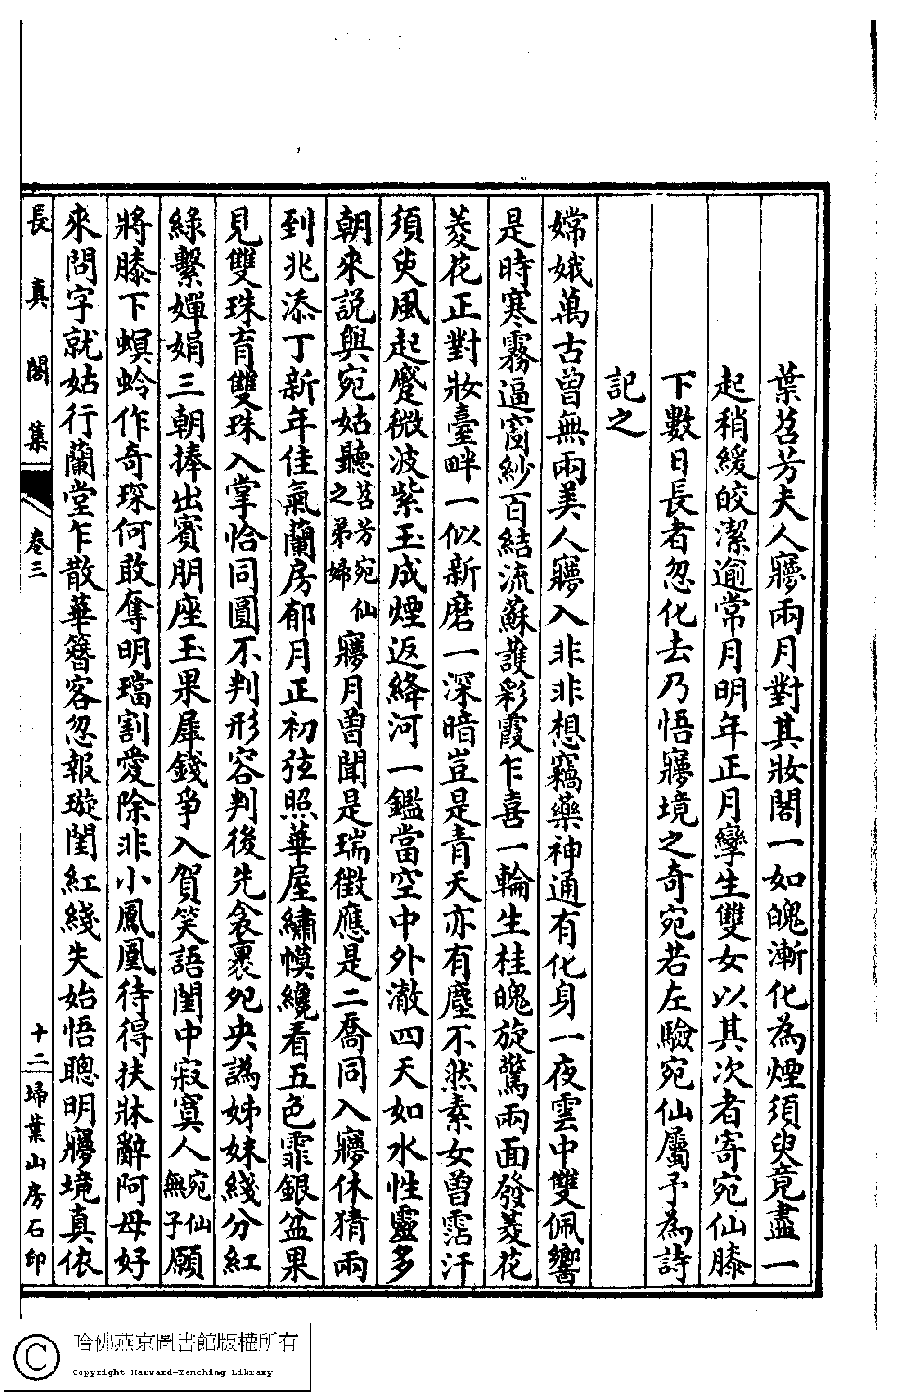 葉苕芳夫人㝱兩月對其妝閣一如魄漸化為煙須臾竟盡一
起稍緩皎潔逾常月明年正月孿生雙女以其次者寄宛仙膝
下數日長者忽化去乃悟㝱境之奇宛若左驗宛仙屬予為詩
記之
嫦娥萬古曾無兩美人㝱入非非想竊藥神通有化身一夜雲中雙佩響
是時寒霧逼窗紗百結流蘇護彩霞乍喜一輪生桂魄旋驚兩面發菱花
菱花正對妝臺畔一似新磨一深暗豈是青天亦有塵不然素女曾霑汗
須臾風起蹙微波紫玉成煙返絳河一鑑當空中外澈四天如水性靈多
朝來說與宛姑聽苕芳宛仙之弟婦㝱月曾聞是瑞徵應是二喬同入㝱休猜兩
到兆添丁新年佳氣蘭房郁月正初弦照華屋繡幙纔看五色霏銀盆果
見雙珠育雙珠入掌恰同圓不判形容判後先衾裹死央譌姊妹綫分紅
綠繫嬋娟三朝捧出賽朋座玉果犀錢爭入賀笑語閨中寂寞人宛仙無子願
將膝下螟蛉作奇琛何敢奪明璫割愛除非小鳳凰待得扶牀辭阿母好
來問字就姑行蘭堂乍散華簪客忽報璇閨紅綫失始悟聰明㝱境真依
長真閣集 卷三 十二 埽葉山房石印
哈佛燕京圖書館版權所有
Copyright Harvard-Yenching Library